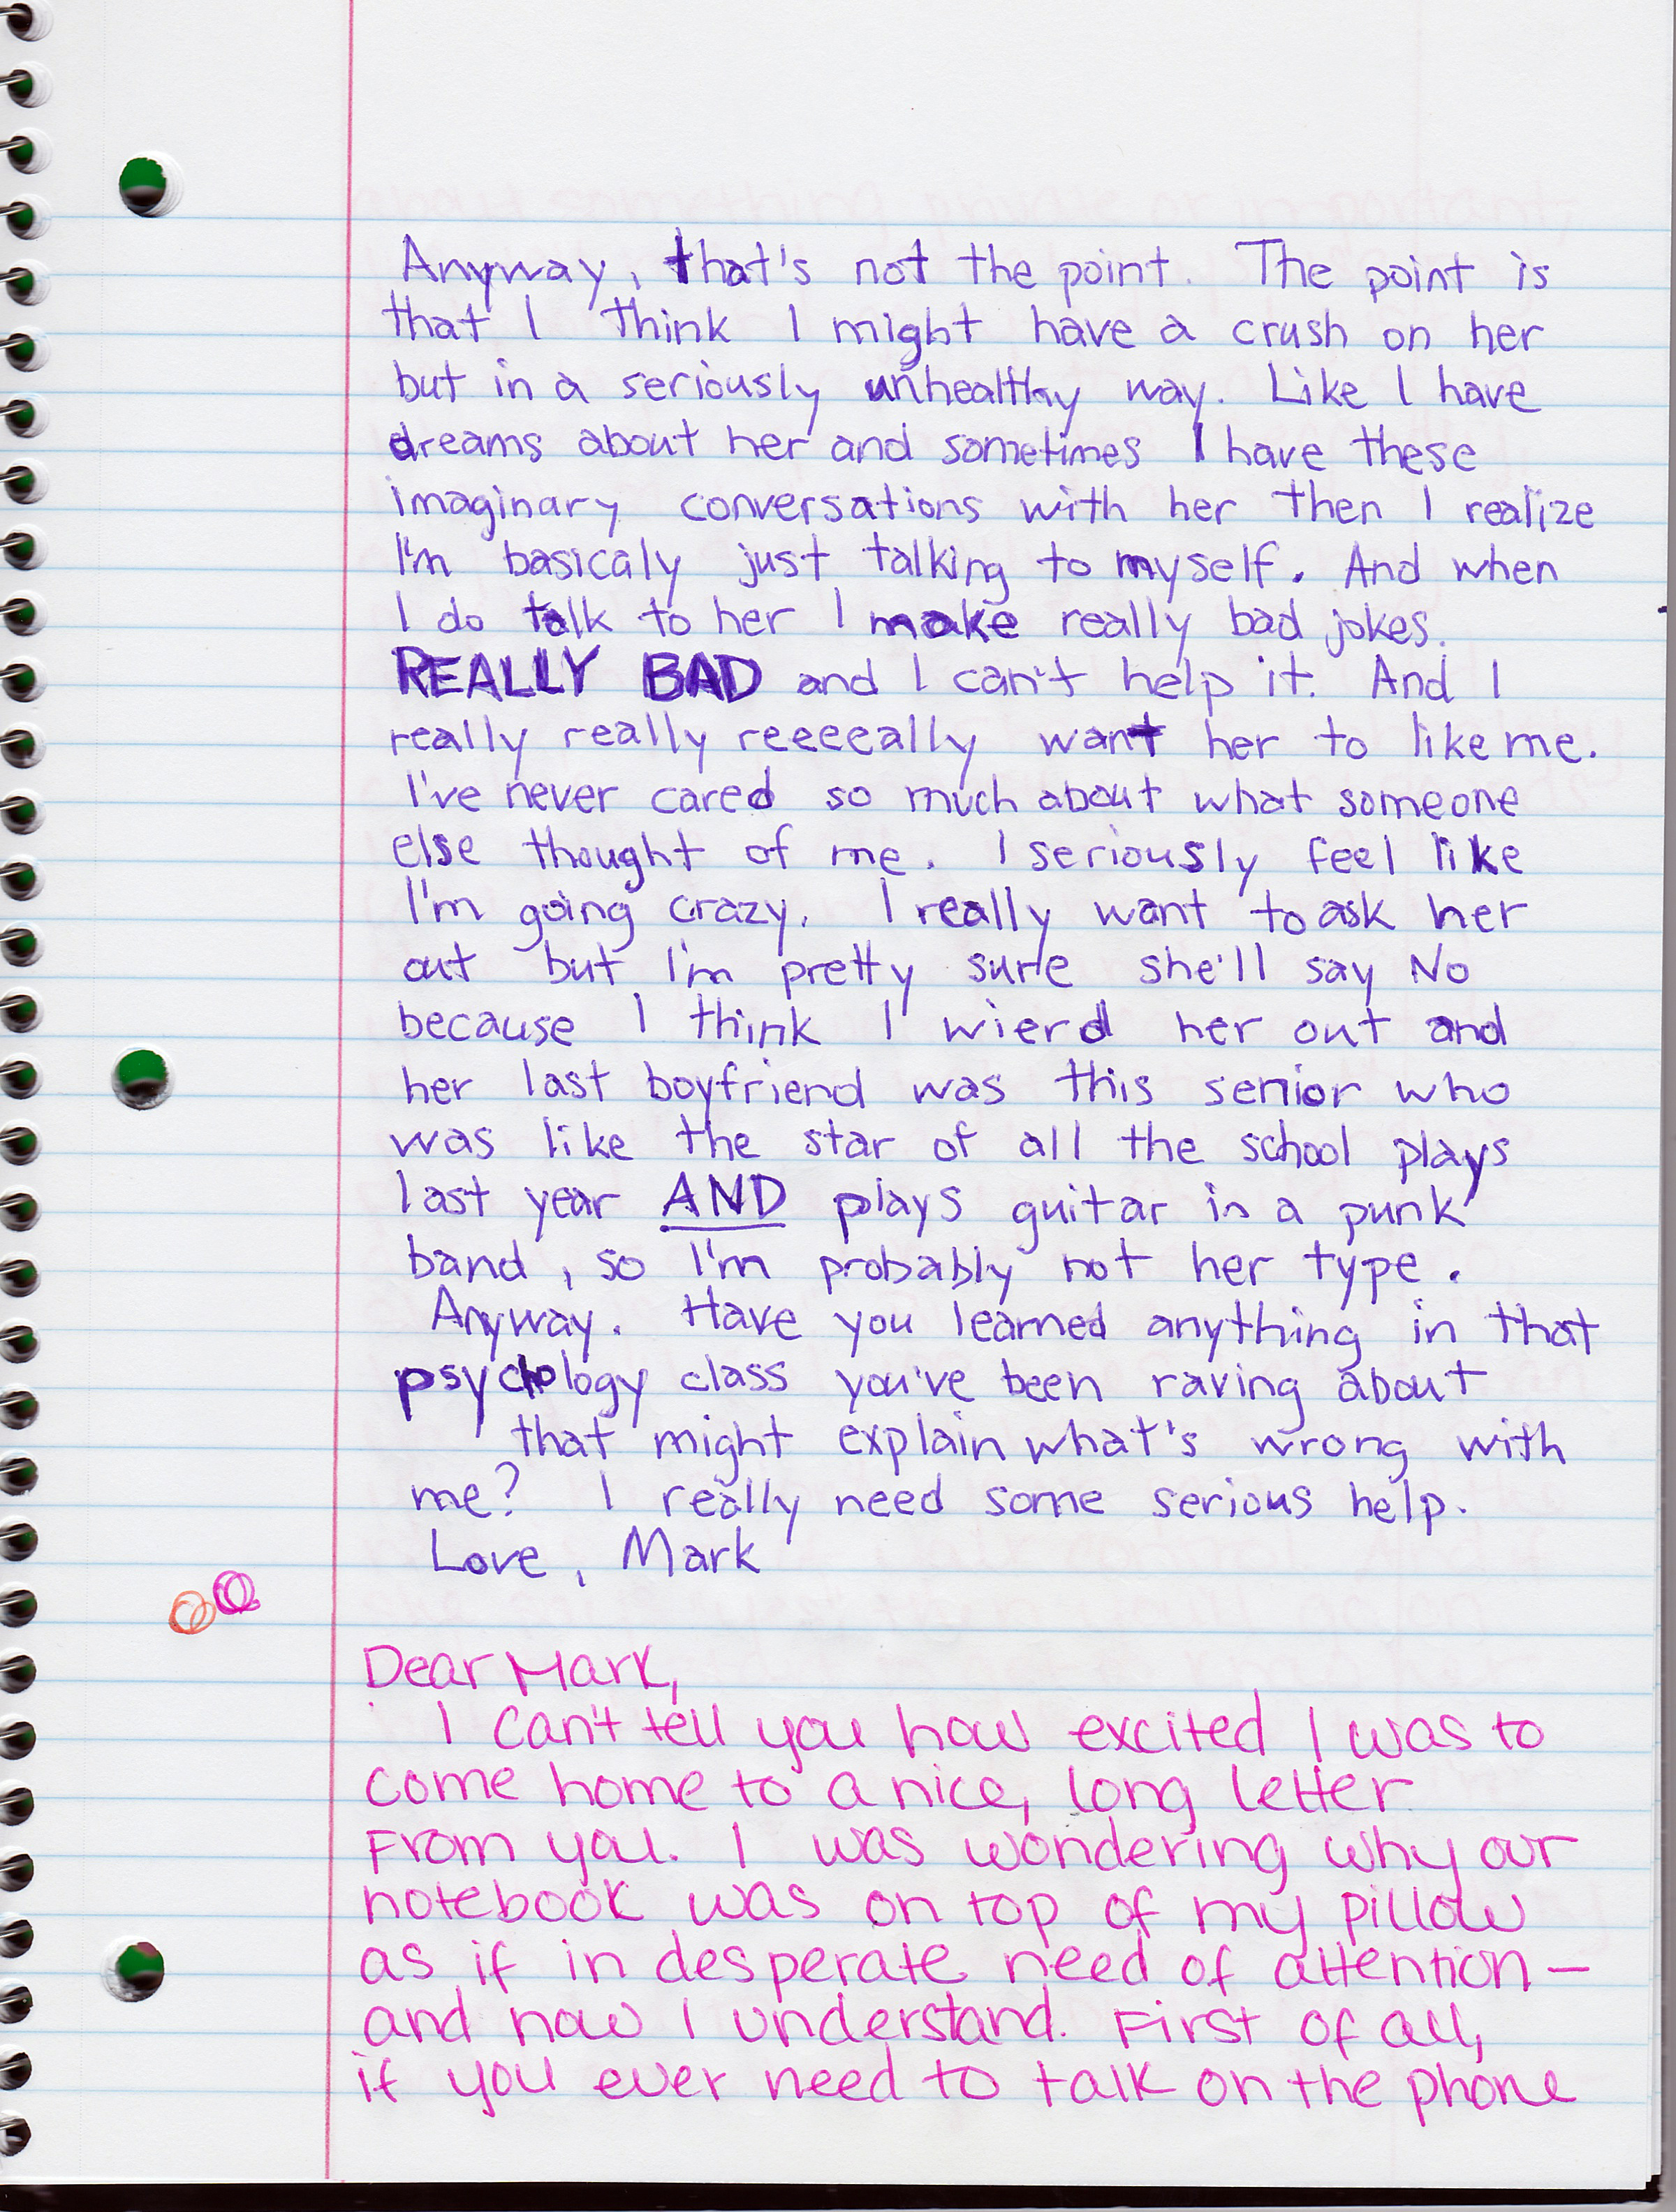 Anyway, that's not the point. The point is
that I think I might have a crush on her
but in a seriously unhealthy way. Like I have
dreams about her and sometimes I have these
imaginary conversations with her then I realize
I'm basicaly just talking to myself. And when
I do talk to her I make really bad jokes.
REALLY BAD and I can't help it. And I
really really reeeeally want her to like me.
I've never cared so much about what someone
else thought of me. I seriously feel like
I'm going crazy. I really want to ask her
out but I'm pretty sure she'll say No
because I think I wierd her out and
her last boyfriend was this senior who
was like the star of all the school plays
last year AND plays guitar in a punk
band, so I'm probably not her type.
Anyway. Have you learned anything in that
psychology class you've been raving about
that might explain what's wrong with
me? I really need some serious help.
Love, Mark
Dear Mark,
I can't tell you how excited I was to
come home to a nice, long letter
from you. I was wondering why our
notebook was on top of my pillow
as if in desperate need of attention—
and now I understand. First of all,
if you ever need to talk on the phone